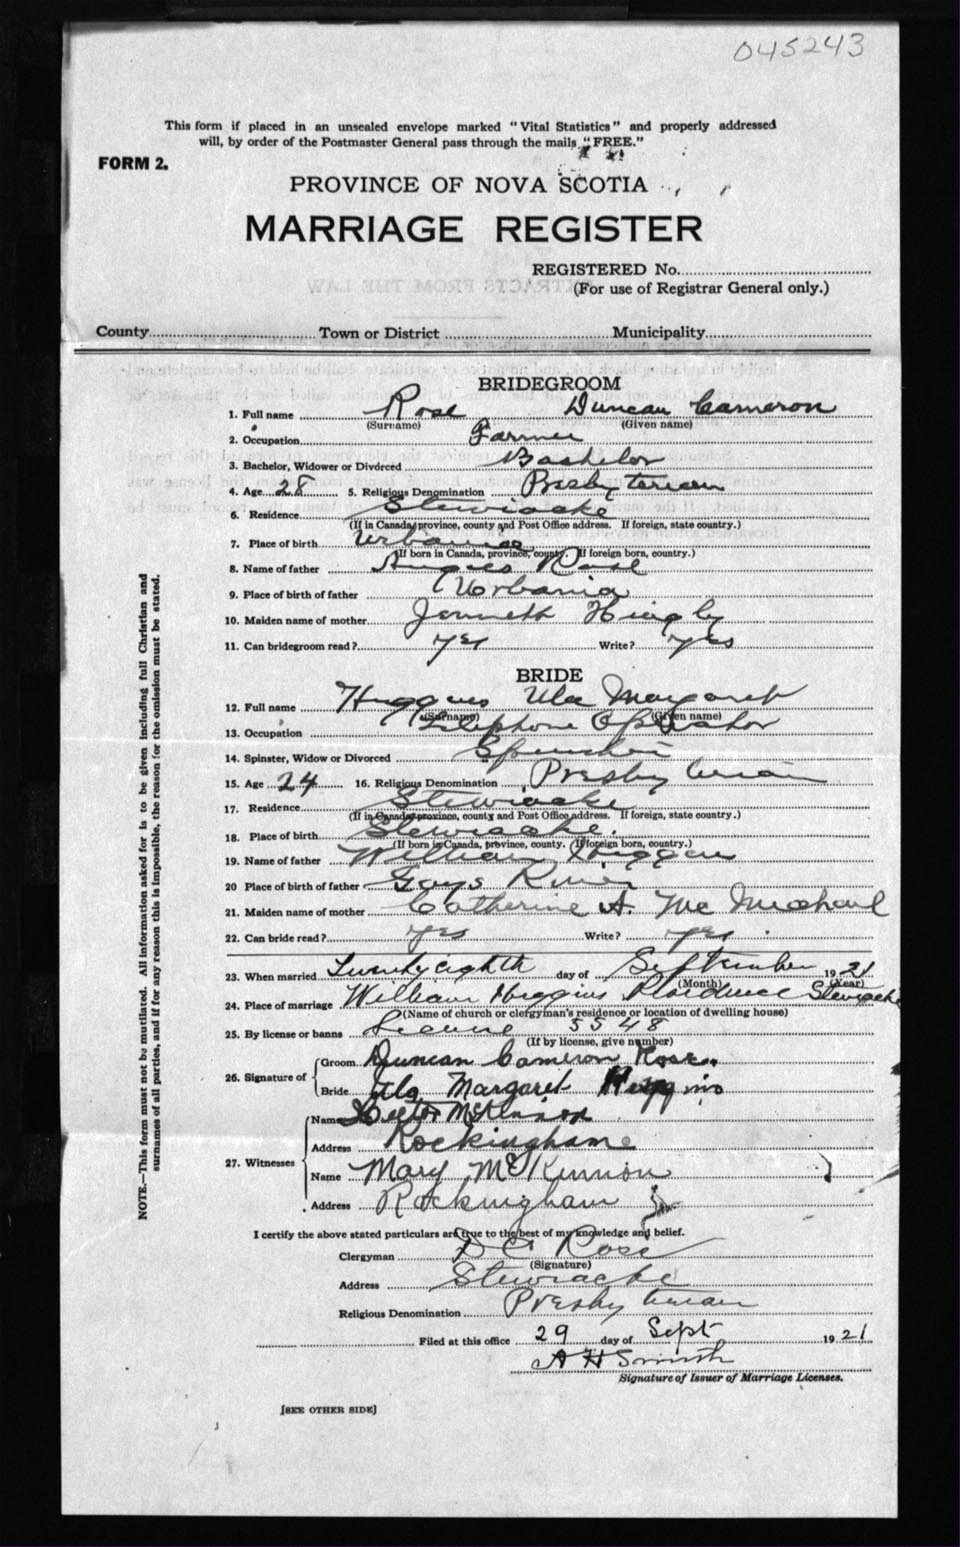 045243
This form if placed in an unsealed envelope marked "Vital Statistics" and properly addressed
will, by order of the Postmaster General pass through the mails "FREE."
FORM 2.
PROVINCE OF NOVA SCOTIA
MARRIAGE REGISTER
REGISTERED No.
(For use of Registrar General only.)
County Town or District Municipality
BRIDEGROOM
1. Full name Rose Duncan Cameron
(Surname) (Given name)
2. Occupation Farmer
3. Bachelor, Widower or Divorced Bachelor
4. Age 28 5. Religious Denomination Presbyterian
6. Residence Stewiacke
(If in Canada, province, county and Post Office address. If foreign, state country.)
7. Place of birth Urbania
(If born in Canada, province, county. If foreign born, country.)
8. Name of father Rose
9. Place of birth of father Urbania
10. Maiden name of mother
11. Can bridegroom read? yes Write? yes
BRIDE
12. Full name Huggins Ula Margaret
(Surname) (Given name)
13. Occupation Telephone Operator
14. Spinster, Widow or Divorced Spinster
15. Age 24 16. Religious Denomination Presbyterian
17. Residence Stewiacke
(If in Canada, province, county and Post Office address. If foreign, state country.)
18. Place of birth Stewiacke.
(If born in Canada, province, county. If foreign born, country.)
19. Name of father William
20 Place of birth of father Gays River
21. Maiden name of mother Catherine A.
22. Can bride read? yes Write? yes
23. When married Twenty eighth day of September 1921
(Month) (Year)
24. Place of marriage William Higgins Stewiacke
(Name of church or clergyman's residence or location of dwelling house)
25. By license or banns 5548
(If by license, give number)
26. Signature of Groom Duncan Cameron Rose.
Bride Ula Margaret Huggins
27. Witnesses Name
Address Rockingham
Name Mary McKinnon
Address Rockingham
I certify the above stated particulars are true to the best of my knowledge and belief.
Clergyman Rose
(Signature)
Address Stewiacke
Religious Denomination Presbyterian
Filed at this office 29 day of Sept 1921
A H Smith
Signature of Issuer of Marriage Licenses.
[SEE OTHER SIDE]
NOTE.—This form must not be mutilated. All information asked for is to be given including full Christian and
surnames of all parties, and if for any reason this is impossible, the reason for the omission must be stated.